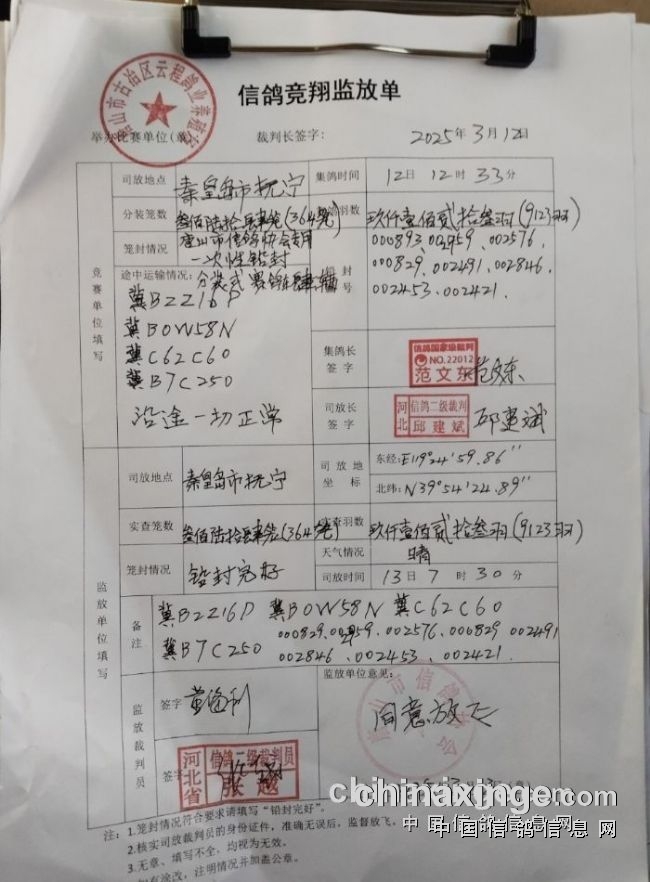 信鸽竞翔监放单
唐山市古冶区云程鸽业养殖
举办比赛单位(章) 裁判长签字: 2025年3月12日
竞赛单位填写
司放地点 秦皇岛市抚宁 集鸽时间 12日12时33分
分装笼数 叁佰陆拾肆笼(364笼) 鸽羽数 玖仟壹佰贰拾叁羽(9123羽)
笼封情况 唐山市信鸽协会专用
一次性铅封
封号 000893 002576.
000829.002491.002846.
002453.002421.
途中运输情况:分装式
冀BZZ16P
冀B0W58N
冀C62C60
冀B7C250
沿途一切正常
集鸽长签字 信鸽国家级裁判
NO.22012
范文东 范文东
司放长签字 河北 信鸽二级裁判
邱建斌 邱建斌
监放单位填写
司放地点 秦皇岛市抚宁 司放地坐标 东经:E119°24'59.86"
北纬:N39°54'24.89"
实查笼数 叁佰陆拾肆笼(364笼) 实查羽数 玖仟壹佰贰拾叁羽(9123羽)
笼封情况 铅封完好 天气情况 晴
司放时间 13日7时30分
备注 冀BZZ16P 冀B0W58N 冀C62C60
冀B7C250 000829. 002576.000829 002491
002846.002453.002421.
监放裁判员 签字
监放单位意见:
同意放飞
签字 河北省 信鸽一级裁判员
注:1.笼封情况符合要求请填写“铅封完好”。
2.核实司放裁判员的身份证件,准确无误后,监督放飞,
3.无章、填写不全、均视为无效。
如有涂改,注明情况并加盖公章。
chinaxinge.com
中国信鸽信息网